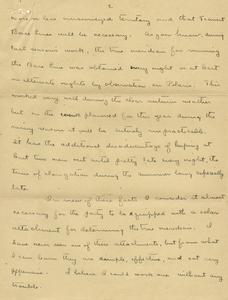 2
more or less unsurveyed territory and that Transit
Base lines will be necessary. As you know, during
last season's work, the true meridian for running
the Base line was obtained every night or at least
on alternate nights by observation on Polaris. This
worked very well during the clear autumn weather
but in the work planned for this year during the
rainy season it will be entirely impracticable.
It has the additional disadvantage of keeping at
least two men out until pretty late every night, the
times of elongation during the summer being especially
late.
In view of these facts I consider it almost
necessary for the party to be equipped with a solar
attachment for determining the true meridian. I
have never seen one of these attachments, but from what
I can learn they are simple, effective, and not very
expensive. I believe I could work one without any
trouble.